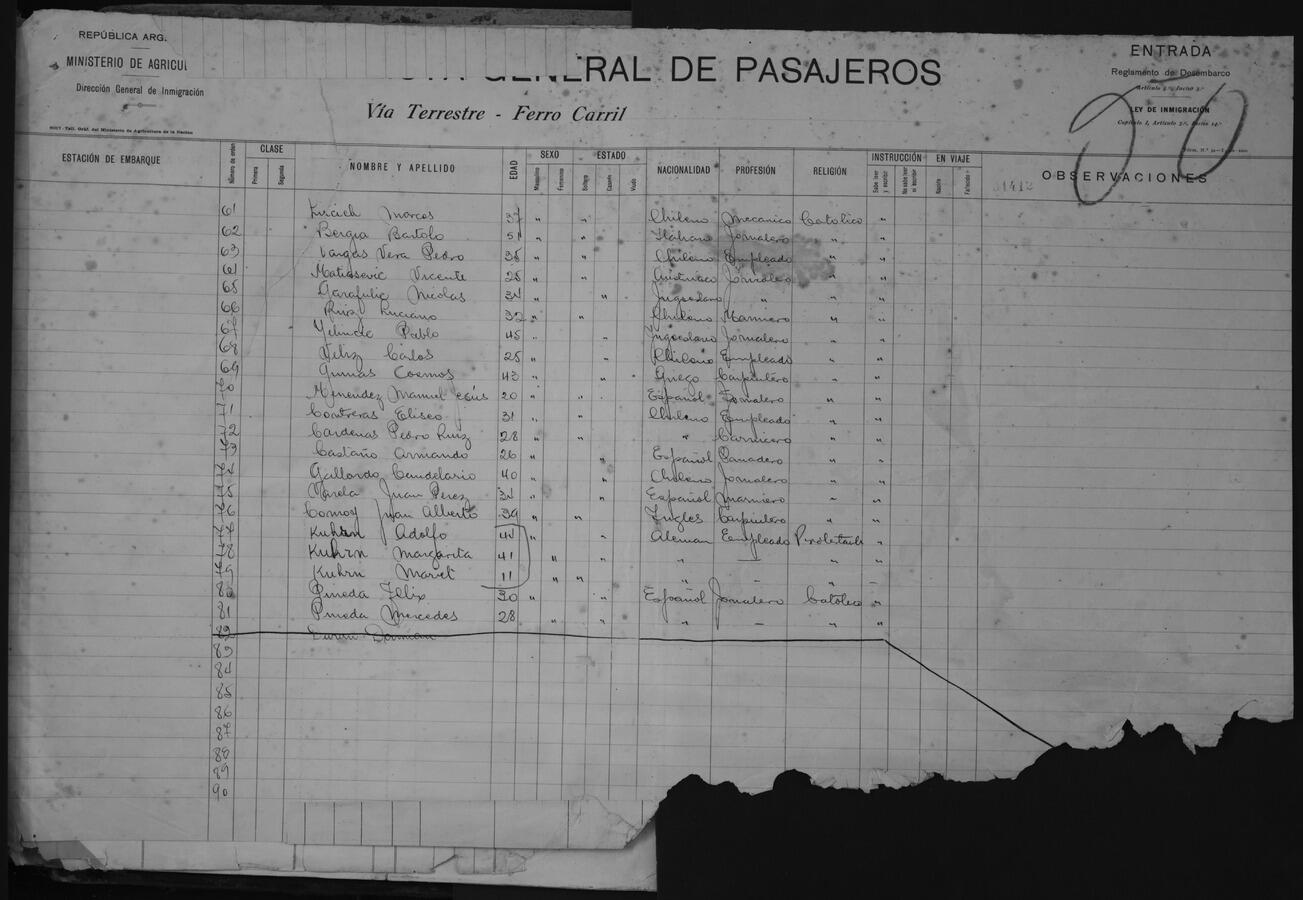 REPÚBLICA ARG.
MINISTERIO DE AGRICUL
Dirección General de Inmigración
GENERAL DE PASAJEROS
Vía Terrestre - Ferro Carril
ENTRADA
Reglamento de Desembarco
LEY DE INMIGRACIÓN
50
ESTACIÓN DE EMBARQUE Número de orden CLASE Primera Segunda NOMBRE Y APELLIDO EDAD SEXO Masculino Femenino ESTADO Soltero Casado Viudo NACIONALIDAD PROFESIÓN RELIGIÓN INSTRUCCIÓN Sabe leer y escribir No sabe leer ni escribir EN VIAJE OBSERVACIONES
61 Marcos 37 " " Chileno Mecanico Catolico "
62 Bergia Bartolo 51 " " Italiano Jornalero " "
63 Vargas Vera Pedro 35 " " Chileno Empleado " "
64 Matiasevic Vicente 25 " " Jornalero " "
65 Garafulic Nicolas 34 " " " " "
66 Ruiz Luciano 32 " " Chileno Marinero " "
67 Pablo 45 " " Jornalero " "
68 Veliz Carlos 25 " " Chileno Empleado " "
69 Cosmos 43 " " Griego Carpintero "
70 Menendez Manuel 20 " " Español Jornalero " "
71 Contreras Eliseo 31 " " Chileno Empleado " "
72 Cardenas Pedro Ruiz 28 " " " Carnicero " "
73 Castaño Armando 26 " " Español Panadero " "
74 Gallardo Candelario 40 " " Chileno Jornalero " "
75 Varela Juan Perez 34 " " Español Marinero " "
76 Juan Alberto 39 " " Ingles Carpintero " "
77 Kuhrn Adolfo " " Aleman Empleado "
78 Kuhrn Margarita 41 " " " — " "
79 Kuhrn 11 " " " – " –
80 Pineda Felix 30 " " Español Jornalero Catolico "
81 Pineda Mercedes 28 " " " – " "
82 Duran Damian
83
84
85
86
87
88
89
90